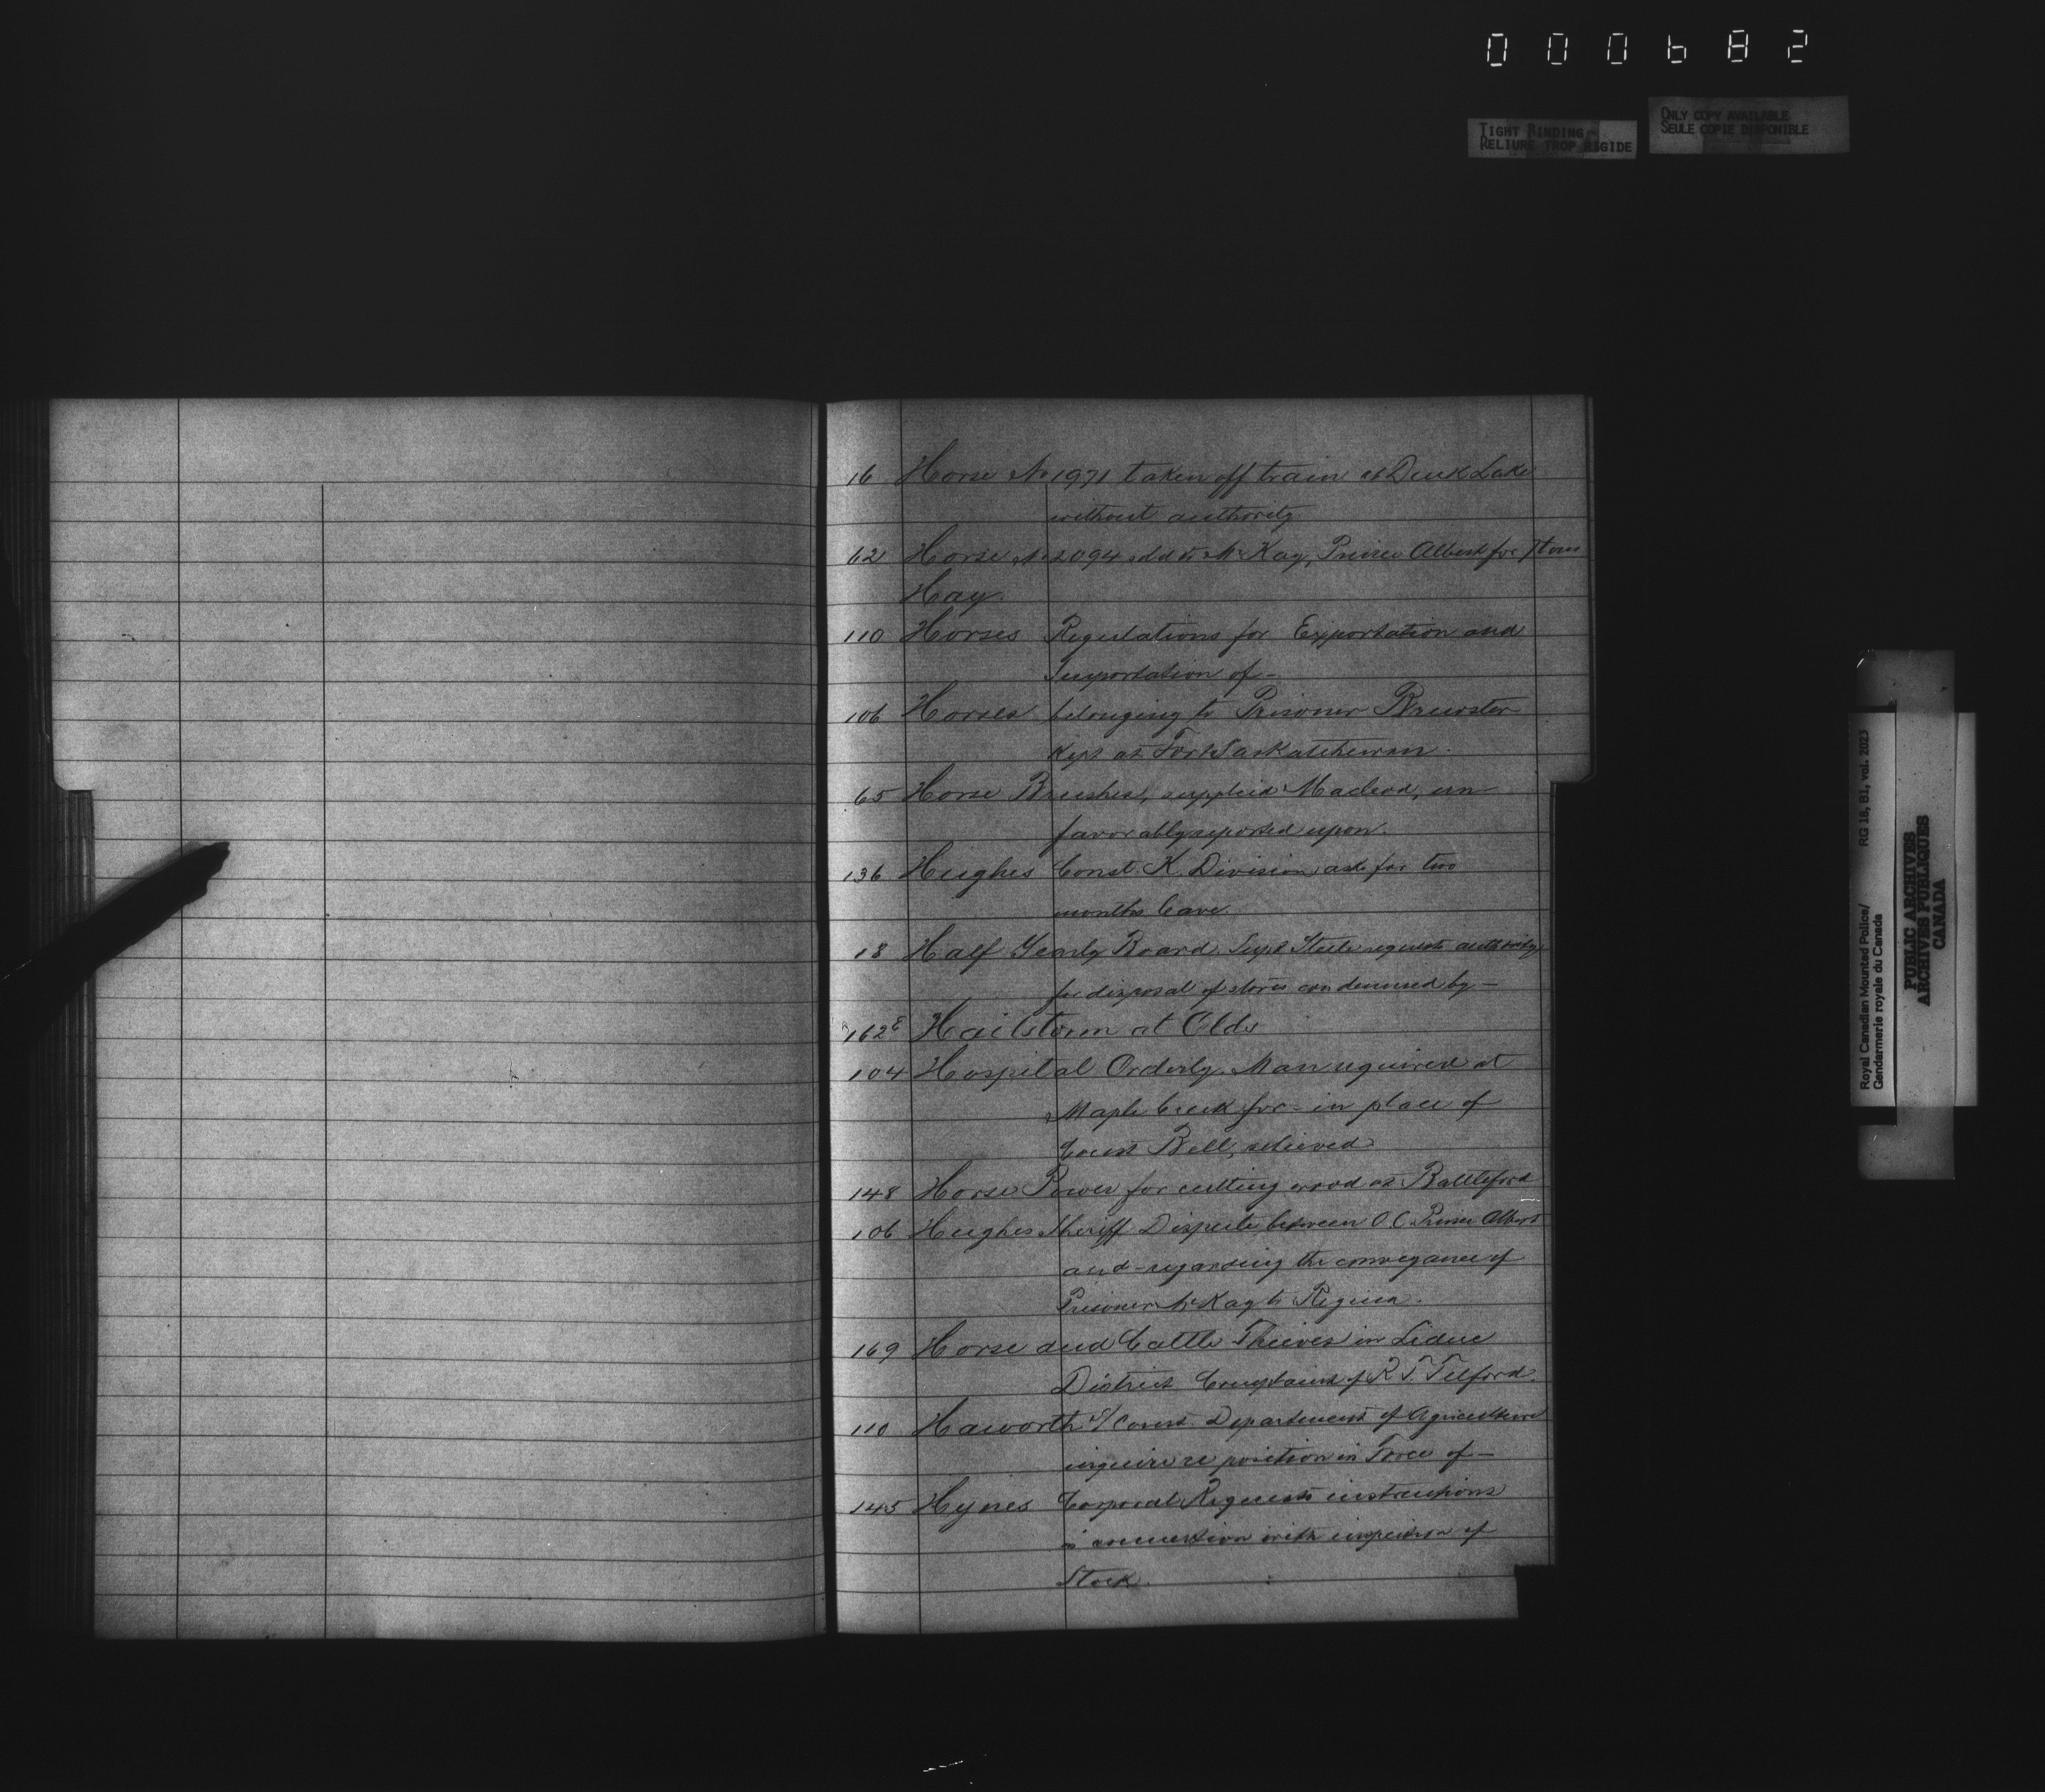 000682
TIGHT BINDING
RELIURE TROP RIGIDE
ONLY COPY AVAILABLE
SEULE COPIE DISPONIBLE
16 Horse No 1971 taken off train at Duck Lake
without authority
62 Horse No 2094 sold to McKay, Prince Albert for
Hay.
110 Horses Regulations for Exportation and
Importation of -
106 Horses belonging to Prisoner Brewster
kept at Fort Saskatchewan.
65 Horse Brushes, supplied Macleod, un
favorably reported upon.
136 Hughes Const. K. Division asks for two
months leave.
18 Half Yearly Board. Supt Steele requests authority
for disposal of stores condemned by -
162 E Hailstorm at Olds
104 Hospital Orderly. Man required at
Maple Creek for - in place of
Const Bell, relieved
148 Horse Power for cutting wood at Battleford
106 Hughes Sheriff Dispute between O.C. Prince Albert
and - regarding the conveyance of
Prisoner McKay to Regina.
169 Horse and Cattle Thieves in Leduc
District Complaint of R.T. Telford.
110 Haworth S/Const. Department of Agriculture
inquire re position in Force of -
145 Hynes Corporal Requests instructions
in connection with inspection of
Stock.
Royal Canadian Mounted Police/
Gendarmerie royale du Canada
RG 18, B1, vol. 2023
PUBLIC ARCHIVES
ARCHIVES PUBLIQUES
CANADA